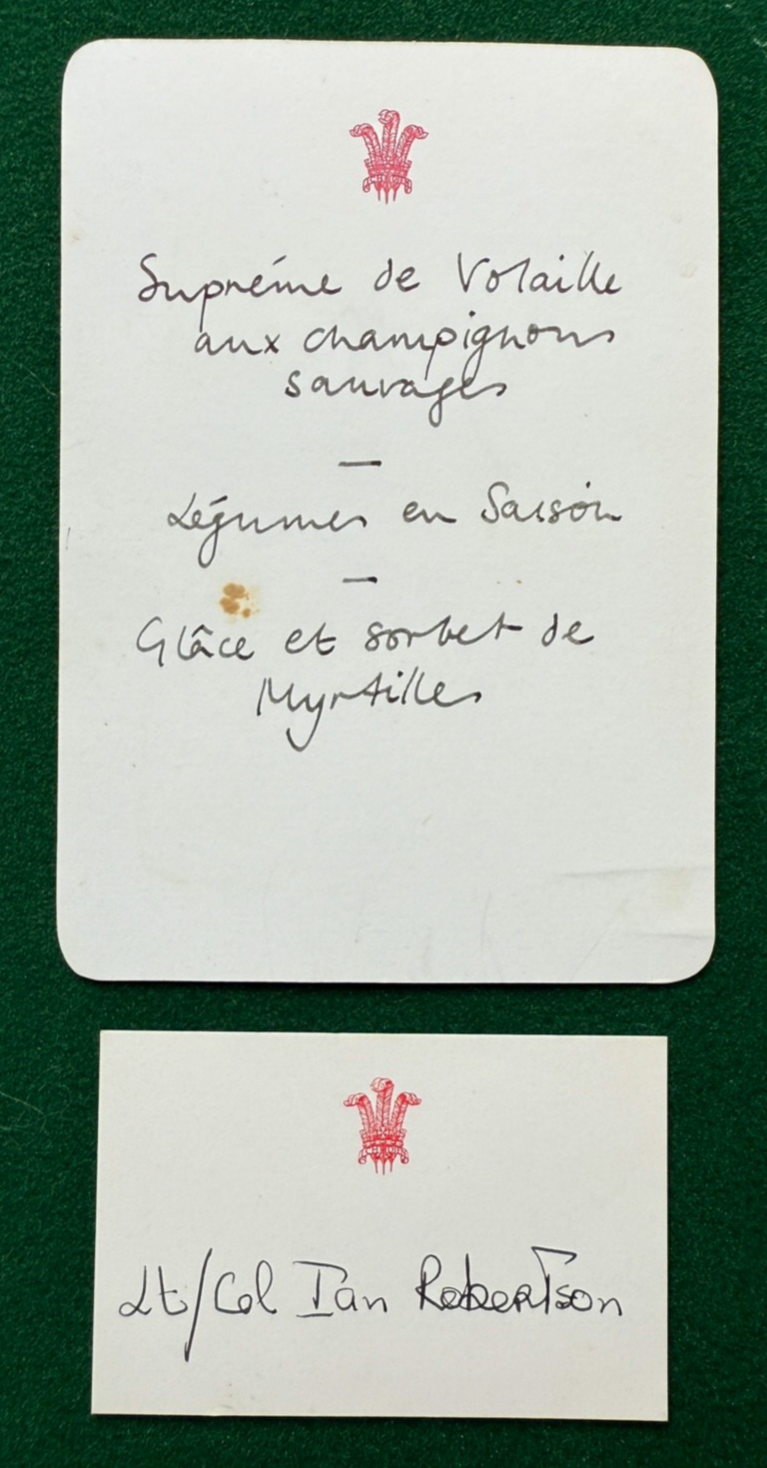 Supréme de Volaille
aux champignons
sauvages
—
Légumes en Saison
—
Glâce et sorbet de
Myrtilles
Lt/Col Ian Robertson